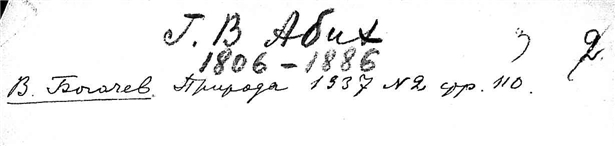 Г. В Абих
1806 – 1886
В. Богачев. Природа 1937 №2 стр. 110.